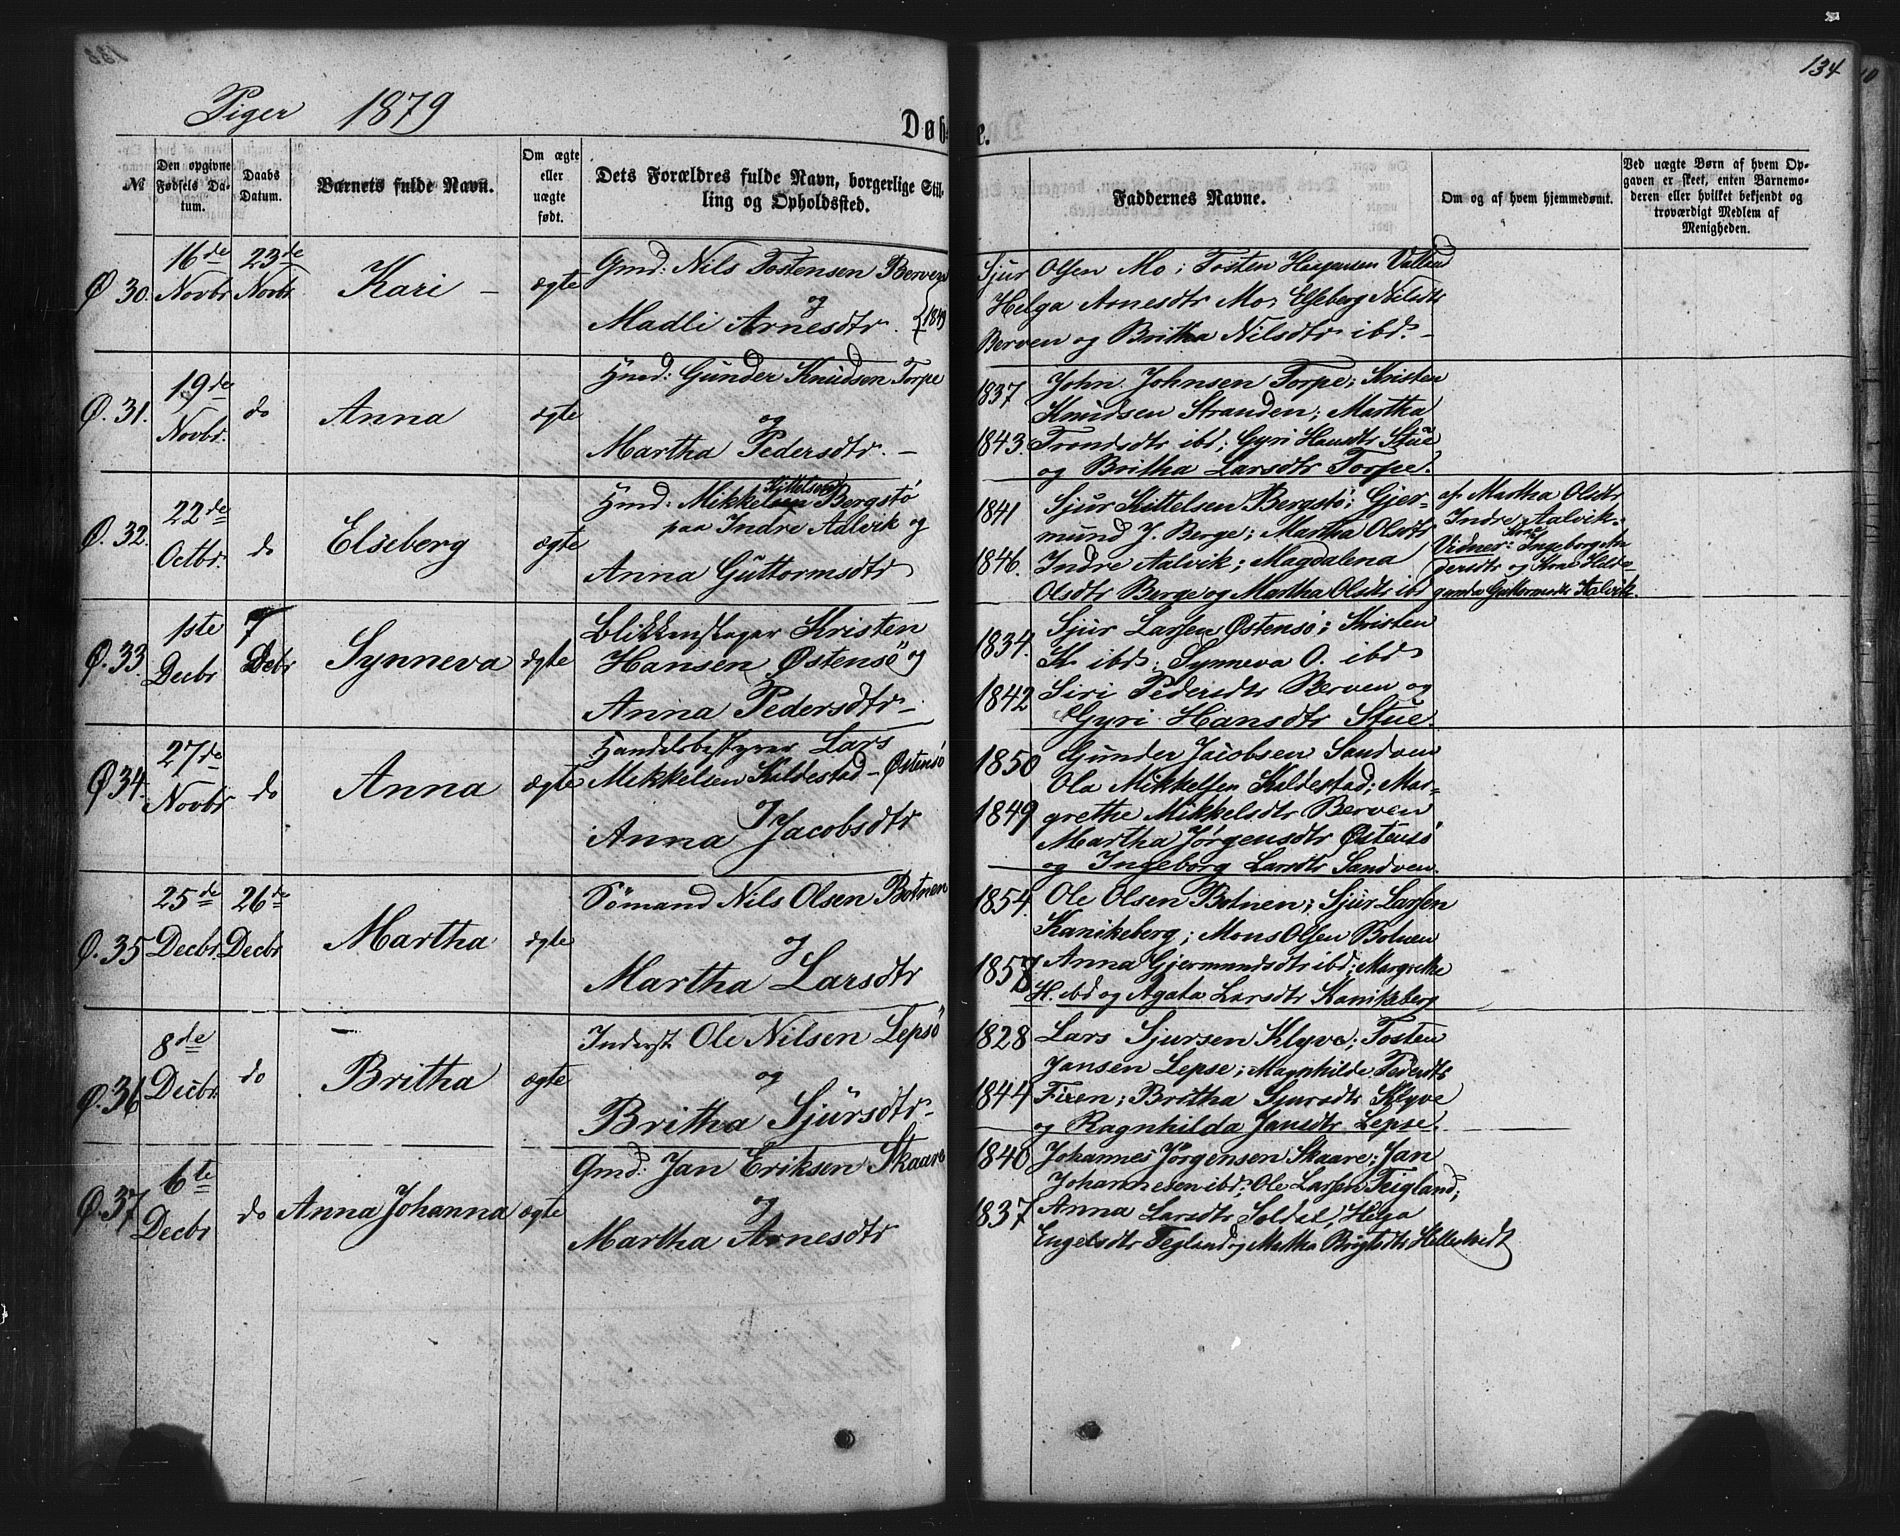 134
Piger 1879
Døb e.
№
Den opgivne Fødsels Datum.
Daabs Datum.
Barnets fulde Navn.
Om ægte eller uægte født.
Dets Forældres fulde Navn, borgerlige Stilling og Opholdssted.
Faddernes Navne.
Om og af hvem hjemmedøbt.
Ved uægte Børn af hvem Opgaven er skeet, enten Barnemoderen eller hvilket bekjendt og troværdigt Medlem af Menigheden.
Ø 30. 16de Novbr 23de Novbr Kari – ægte
Gmd: Nils Tostensen Berven
og
Madli Arnesdtr. {1849
Sjur Olsen Mo; Tosten
Helga Arnesdtr Mo; Elseberg Nilsdtr
Berven og Britha Nilsdtr ibd. –
Ø. 31. 19de Novbr. do Anna ægte
Hmd: Gunder Knudsen Torpe
og
Martha Pedersdtr. –
1837 John Johnsen Torpe; Kristen
Knudsen Stranden; Martha
1843. Trondsdtr ibd; Gyri Hansdtr Stue
og Britha Larsdtr Torpe.
Ø. 32. 22de Octbr. do Elseberg ægte
Hmd: Mikkelsen Kittelsen Bergstø
paa Indre Aalvik og
Anna Guttormsdtr
1841 Sjur Kittelsen Bergstø; Gjer-
mund J. Berge; Martha Olsdtr
1846. Indre Aalvik; Magdalena
Olsdtr Berge og Martha Olsdtr ibd
af Martha Olsdtr
Indre Aalvik.
Vidner: Kone Ingeborg An
dersdtr og Kone Helde-
gunda Guttormsdtr Aalvik.
Ø. 33. 1ste Decbr 7 Decbr Synneva ægte
Blikkenslager Kristen
Hansen Østensø og
Anna Pedersdtr –
1834. Sjur Larsen Østensø; Kristen
K. ibd; Synneva O. ibd
1842 Siri Pedersdtr Berven og
Gyri Hansdtr Stue.
Ø 34. 27de Novbr do Anna ægte
Handelsbestyrer Lars
Mikkelsen Kaldestad – Østensø
Anna Jacobsdtr
1850 Gunder Jacobsen Sandven
Ola Mikkelsen Kaldestad; Mar-
1849 grethe Mikkelsdtr Berven
Martha Jørgensdtr Østensø
og Ingeborg Larsdtr Sandven.
Ø. 35 25de Decbr 26de Decbr Martha ægte
Sømand Nils Olsen Botnen
og
Martha Larsdtr
1854. Ole Olsen Botnen; Sjur Larsen
Kanikeberg; Mons Olsen Botnen
1857 Anna Gjermundsdtr ibd; Margrethe
H. ibd og Agata Larsdtr Kanikeberg
Ø. 36 8de Decbr do Britha ægte
Inderst Ole Nilsen Lepsø
og
Britha Sjursdtr –
1828 Lars Sjursen Klyve; Tosten
Jansen Lepse; Magnhilde Pedersdtr
1844 Fixen; Britha Sjursdtr Klyve
og Ragnhilda Jansdtr Lepse.
Ø. 37 6te Decbr do Anna Johanna ægte
Gmd: Jan Eriksen Skaare
og
Martha Arnesdtr
1840 Johannes Jørgensen Skaare; Jan
Johannesen ibd; Ole Larsen Teigland;
1837 Anna Larsdtr Soldal, Helga
Engelsdtr Tegland og Martha Hellestvedt